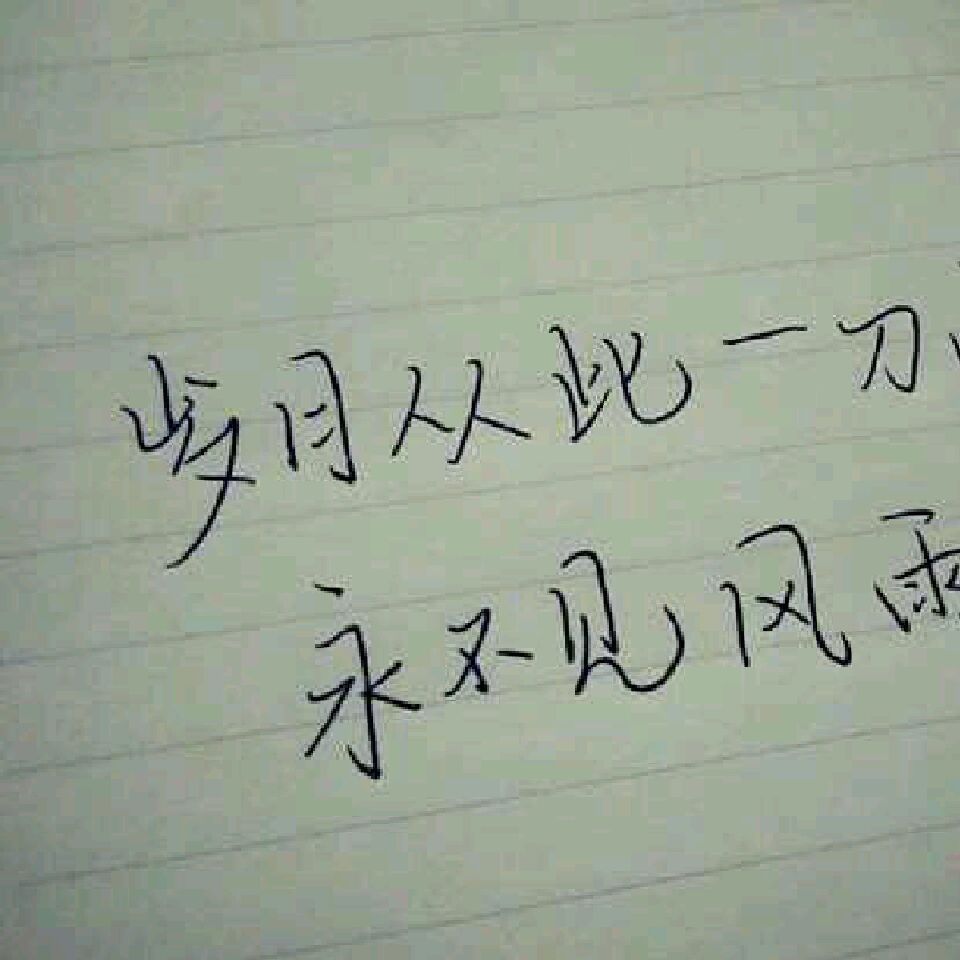 岁月从此一刀
永不见风雨